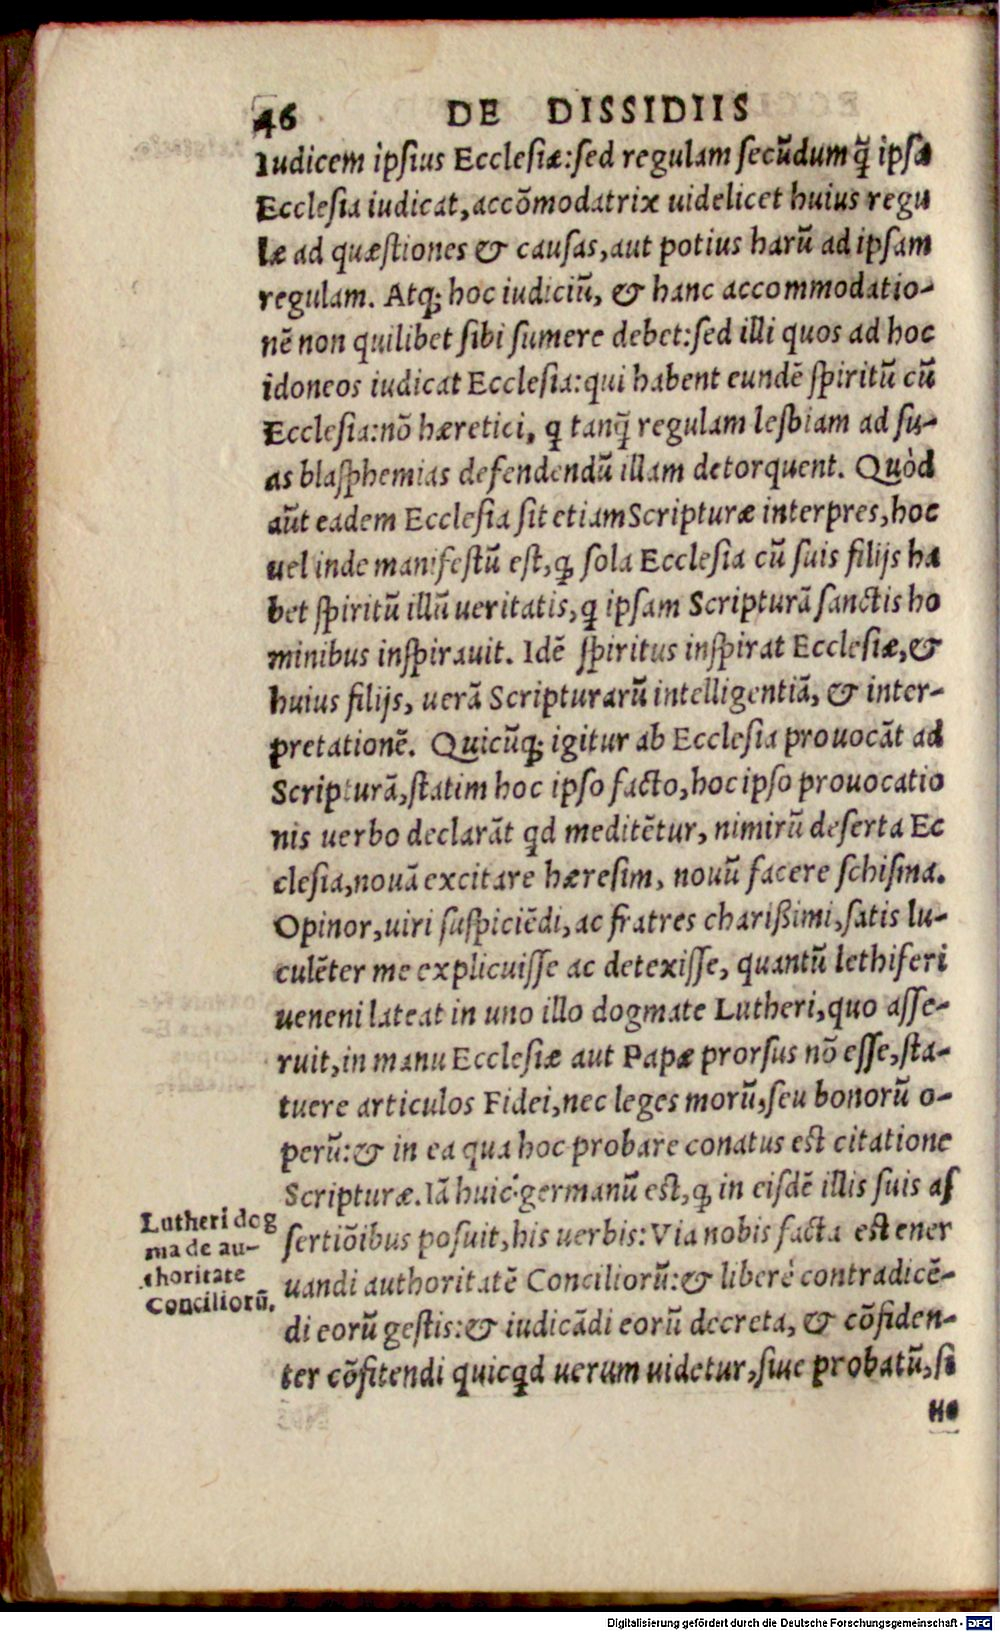 46 DE DISSIDIIS
Iudicem ipsius Ecclesiæ:sed regulam secūdum q̃ ipsa
Ecclesia iudicat, accōmodatrix uidelicet huius regu
læ ad quæstiones & causas, aut potius harū ad ipsam
regulam. Atq; hoc iudiciū, & hanc accommodatio-
nē non quilibet sibi sumere debet:sed illi quos ad hoc
idoneos iudicat Ecclesia:qui habent eundē spiritū cū
Ecclesia:nō hæretici, q tanq̃ regulam lesbiam ad su-
as blasphemias defendendū illam detorquent. Quòd
aūt eadem Ecclesia sit etiam Scripturæ interpres, hoc
uel inde manifestū est, q; sola Ecclesia cū suis filijs ha
bet spiritū illū ueritatis, q ipsam Scripturā sanctis ho
minibus inspirauit. Idē spiritus inspirat Ecclesiæ, &
huius filijs, uerā Scripturarū intelligentiā, & inter-
pretationē. Quicūq; igitur ab Ecclesia prouocāt ad
Scripturā, statim hoc ipso facto, hoc ipso prouocatio
nis uerbo declarāt qd meditētur, nimirū deserta Ec
clesia, nouā excitare hæresim, nouū facere schisma.
Opinor, uiri suspiciēdi, ac fratres charißimi, satis lu-
culēter me explicuisse ac detexisse, quantū lethiferi
ueneni lateat in uno illo dogmate Lutheri, quo asse-
ruit, in manu Ecclesiæ aut Papæ prorsus nō esse, sta-
tuere articulos Fidei, nec leges morū, seu bonorū o-
perū:& in ea qua hoc probare conatus est citatione
Scripturæ. Iā huic germanū est, q; in eisdē illis suis as
sertiōibus posuit, his uerbis: Via nobis facta est ener
uandi authoritatē Conciliorū:& liberè contradicē-
di eorū gestis:& iudicādi eorū decreta, & cōfiden-
ter cōfitendi quicqd uerum uidetur, siue probatū, si
ue
Lutheri dog
ma de au-
thoritate
Conciliorū.
Digitalisierung gefördert durch die Deutsche Forschungsgemeinschaft - DFG